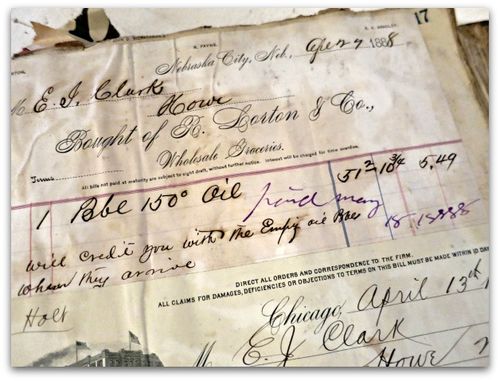 17
R. PAYNE.
Nebraska City, Neb., Apr 27 1888
M E. J. Clark
Howe
Bought of R. Lorton & Co.,
Wholesale Groceries.
Terms
All bills not paid at maturity are subject to sight draft, without further notice. Interest will be charged for time overdue.
1 Bbl 150° Oil 51 2 10 3/4 5.49
paid may 15 1888
will credit you with the Empty oil Bbls
when they arrive
DIRECT ALL ORDERS AND CORRESPONDENCE TO THE FIRM.
ALL CLAIMS FOR DAMAGES, DEFICIENCIES OR OBJECTIONS TO TERMS ON THIS BILL MUST BE MADE WITHIN 10 DAY
Holt
Chicago, April 13th
M E. J. Clark
Howe